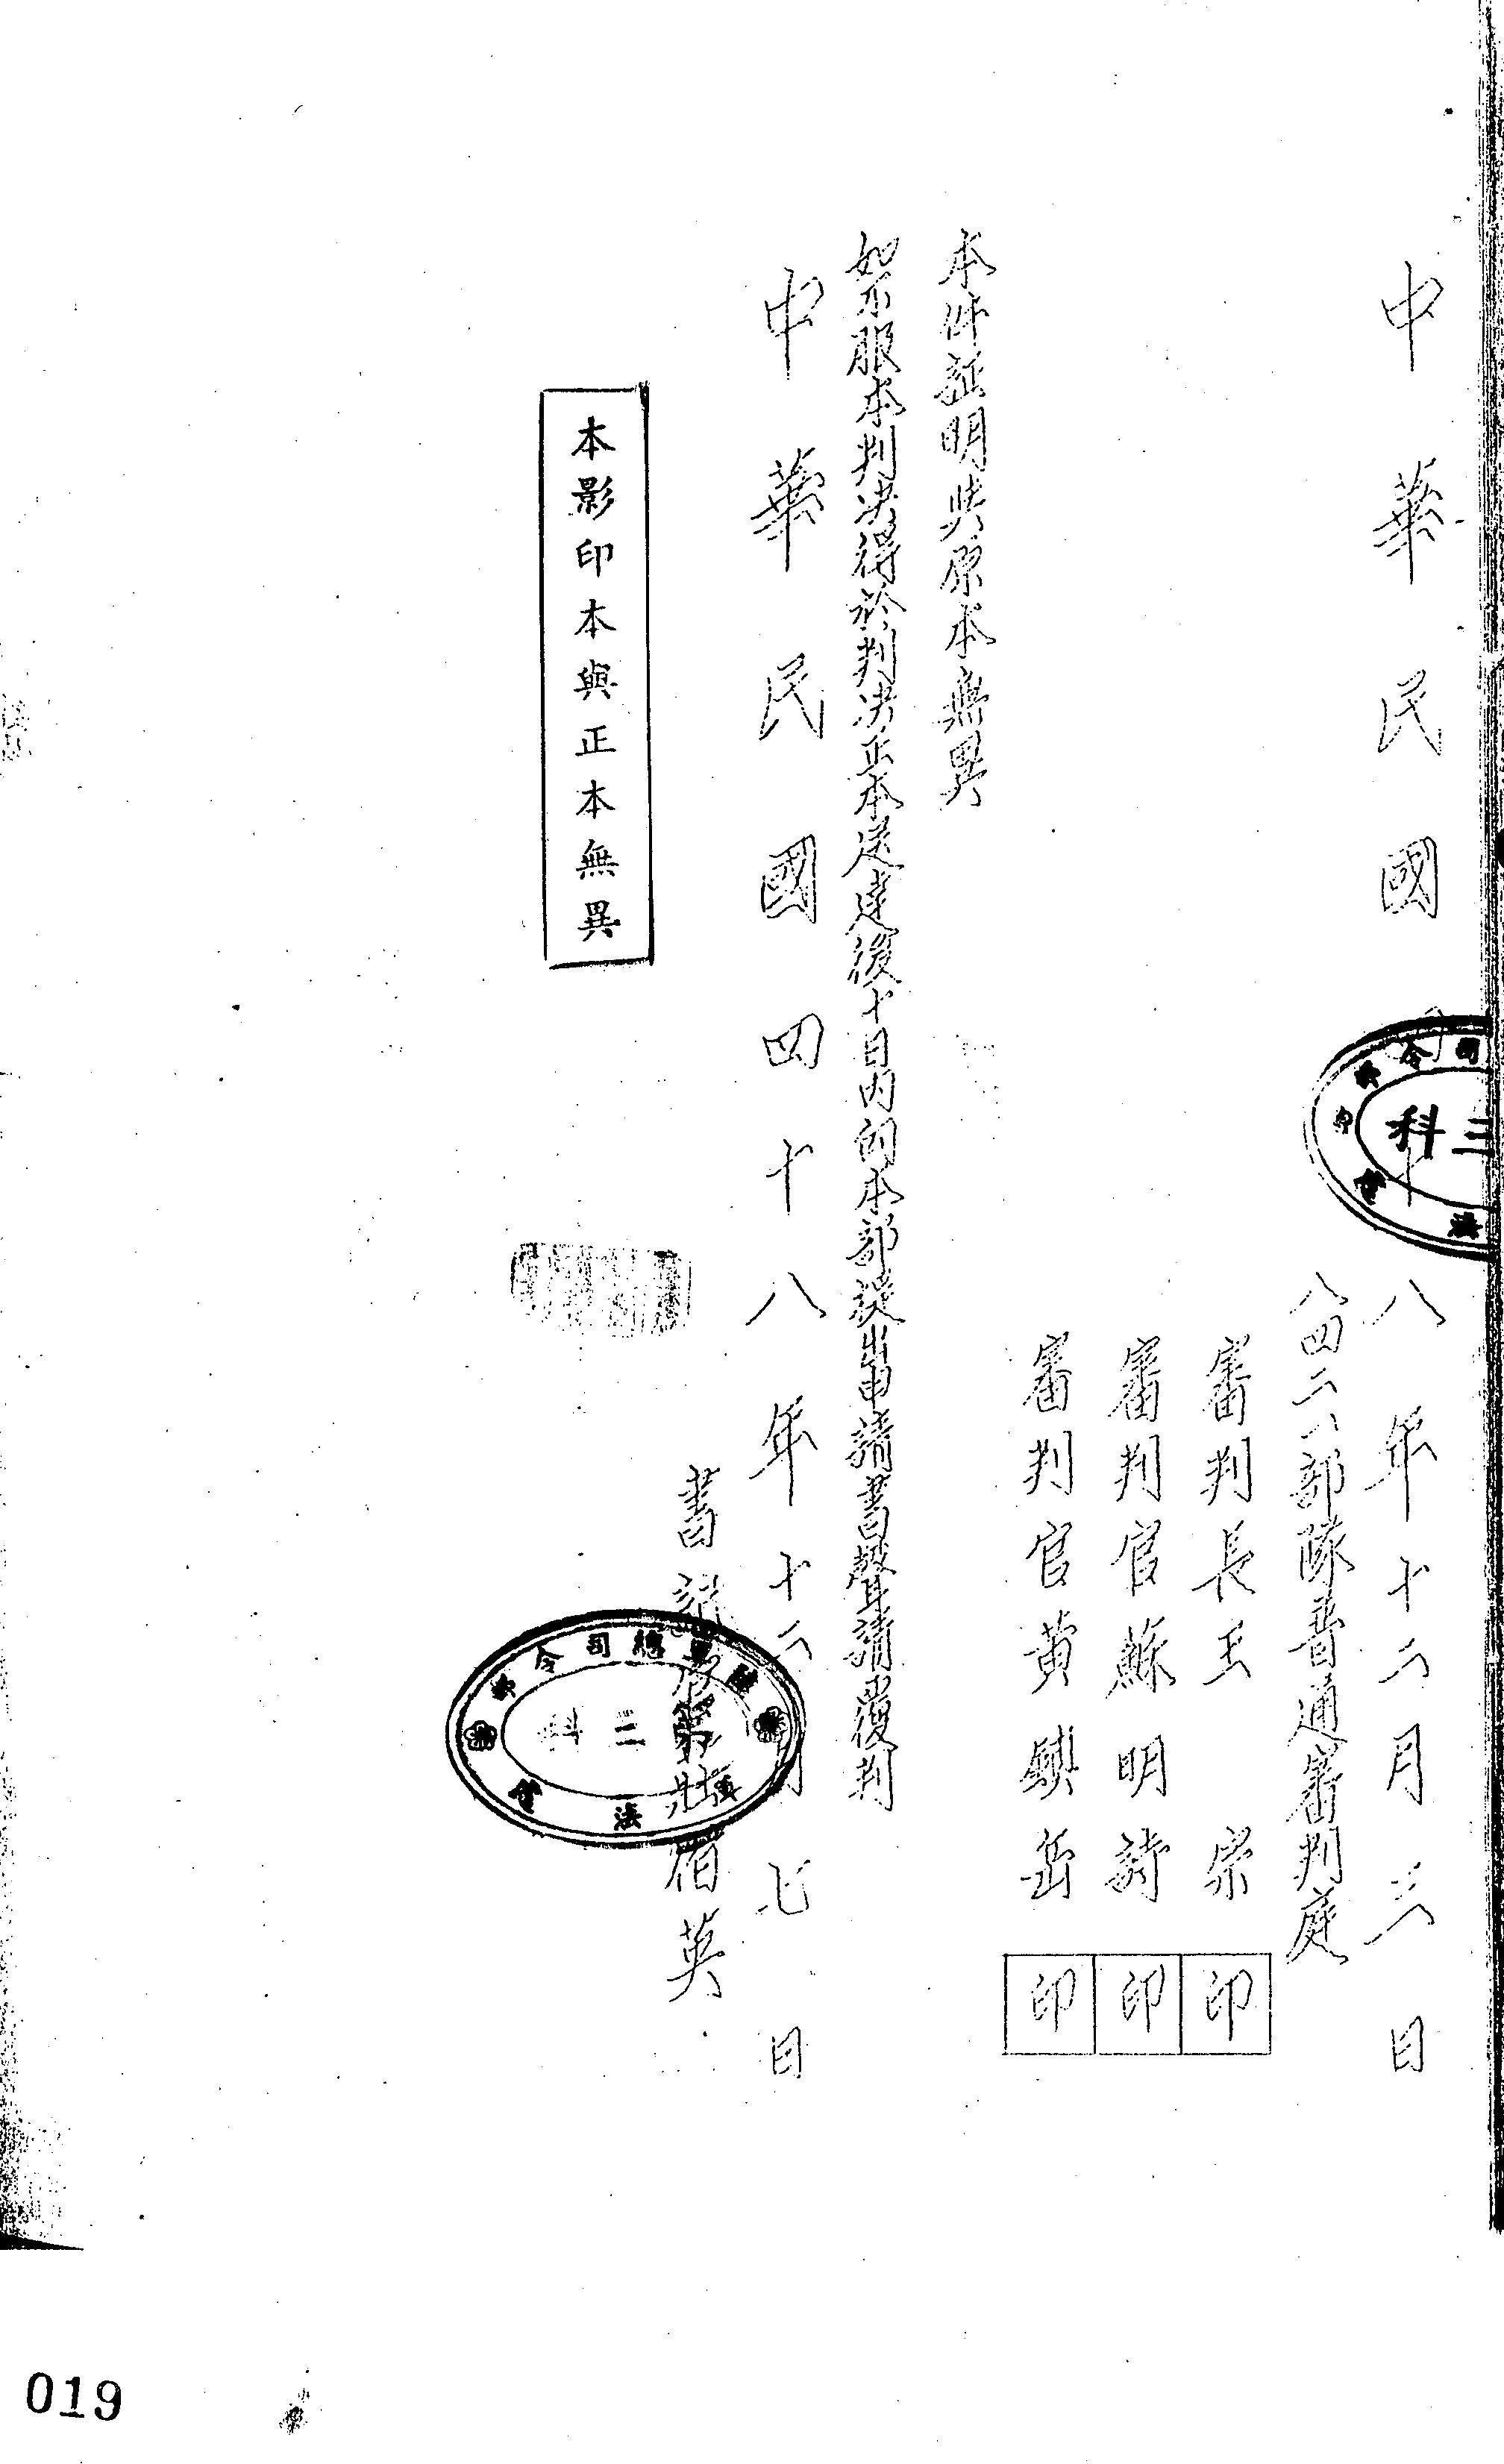 中華民國四十八年十二月三日
八四二八部隊普通審判庭
審判長王宗印
審判官蘇明詩印
審判官黃鎮岳印
本件証明與原本無異
如不服本判決得於判決正本送達後十日內向本部提出申請書聲請覆判
中華民國四十八年十二月七日
書記
英
本影印本與正本無異
令司
科三
法
陸軍總司令部
第二科
軍法會
019